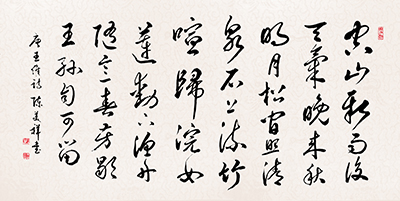 空山新雨後
天氣晚來秋
明月松間照清
泉石上流竹
喧歸浣女
蓮動下漁舟
隨意春芳歇
王孫自可留
唐王維詩 陳美祥書